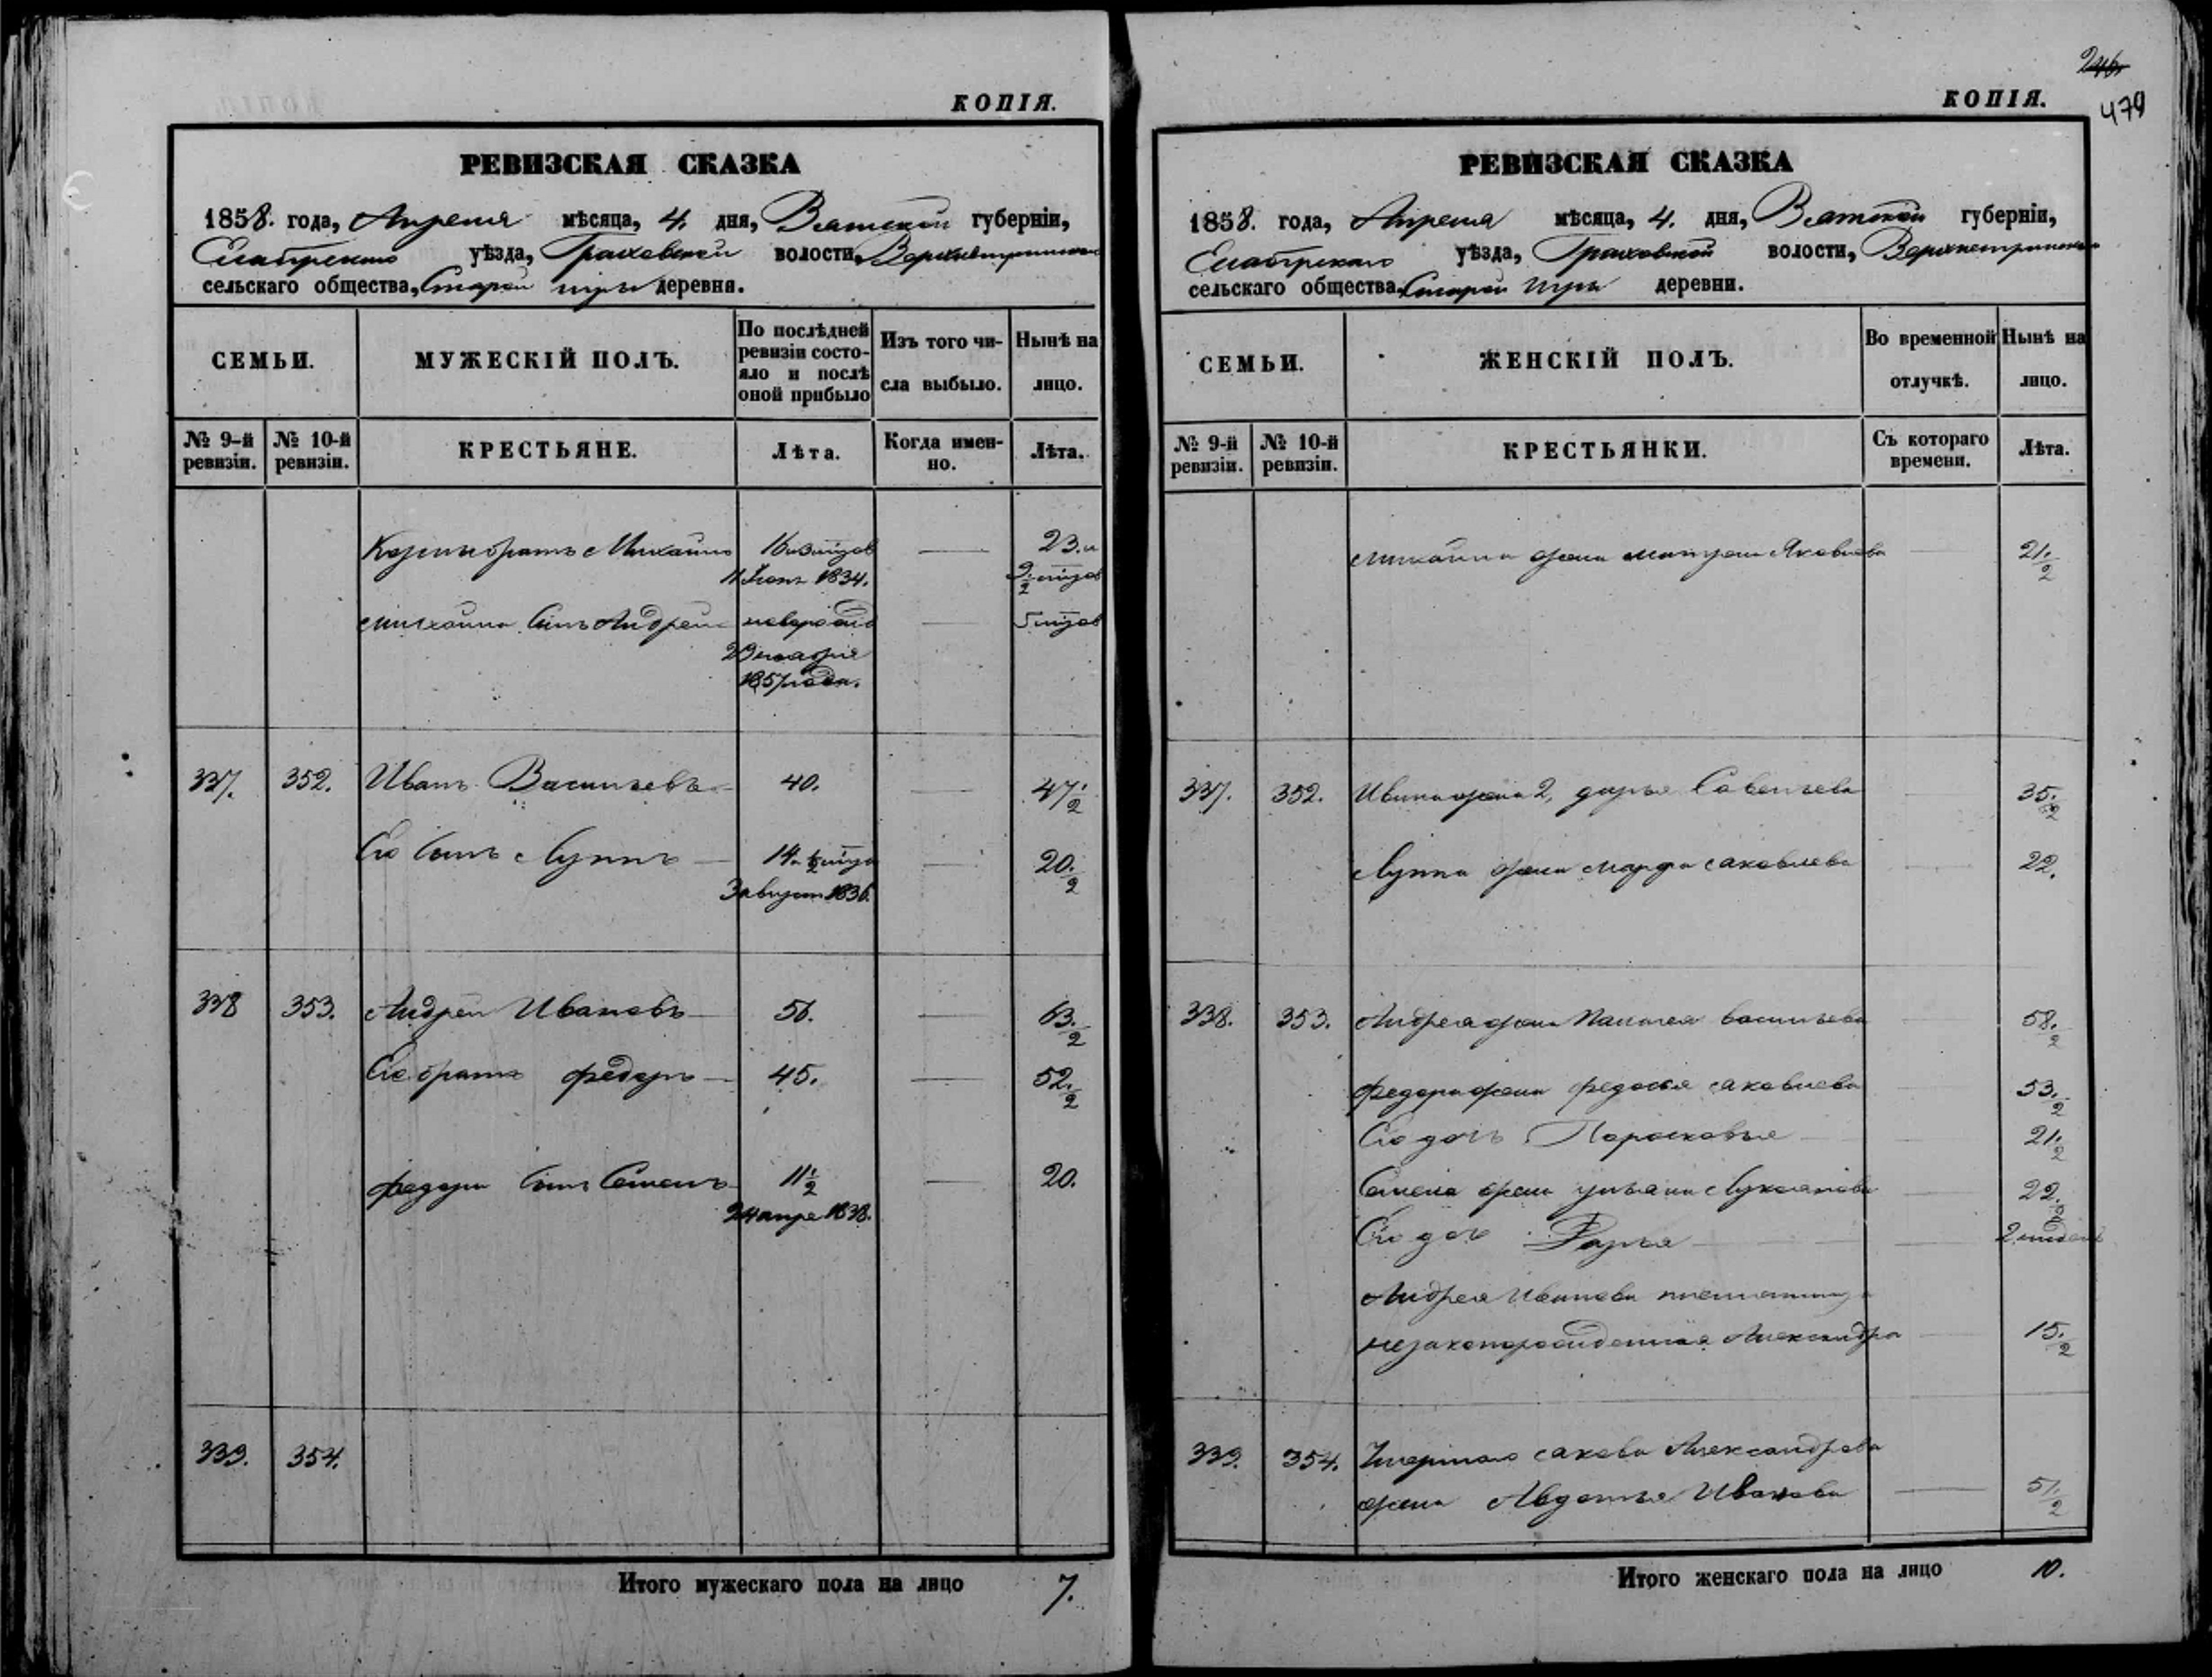 КОПІЯ.
РЕВИЗСКАЯ СКАЗКА
1858. года, Апреля мѣсяца, 4. дня, Вятской губерніи,
Елабугскаго уѣзда, Граховской волости,
сельскаго общества, Старой деревня.
СЕМЬИ.
МУЖЕСКІЙ ПОЛЪ.
По послѣдней
ревизіи состо-
яло и послѣ
оной прибыло
Изъ того чи-
сла выбыло.
Нынѣ на
лицо.
№ 9-й
ревизіи.
№ 10-й
ревизіи.
КРЕСТЬЯНЕ.
Лѣта.
Когда имен-
но.
Лѣта.
братъ Михайло 23. и
1834.
Михайла сынъ Андрей
1857 года.
337. 352. Иванъ Васильевъ 40. 47 1/2
Его сынъ Луппъ 14 20 1/2
3 август 1836.
338 353. Андрей Ивановъ 56. 63 1/2
Его братъ Федоръ 45. 52 1/2
Федора сынъ Семенъ 11 1/2 20.
24 апре 1838.
339. 354.
Итого мужескаго пола на лицо 7.
246
479
КОПІЯ.
РЕВИЗСКАЯ СКАЗКА
1858. года, Апреля мѣсяца, 4. дня, Вятской губерніи,
Елабугскаго уѣзда, Граховской волости,
сельскаго общества, Старой деревни.
СЕМЬИ.
ЖЕНСКІЙ ПОЛЪ.
Во временной
отлучкѣ.
Нынѣ на
лицо.
№ 9-й
ревизіи.
№ 10-й
ревизіи.
КРЕСТЬЯНКИ.
Съ котораго
времени.
Лѣта.
Михайла жена Яковлева 21 1/2
337. 352. Ивана жена 2, Дарья Савельева 35 1/2
Луппа жена Марфа Яковлева 22.
338. 353. Андрея жена Васильева 58 1/2
Федора жена Федосья Яковлева 53 1/2
Его дочь Парасковья 21 1/2
Семена жена Ульяна 22
Его доч Дарья
Андрея Иванова племянница
незаконорожденная Александра 15 1/2
339. 354. Умершаго Якова Александрова
жена Авдотья Иванова 51 1/2
Итого женскаго пола на лицо 10.